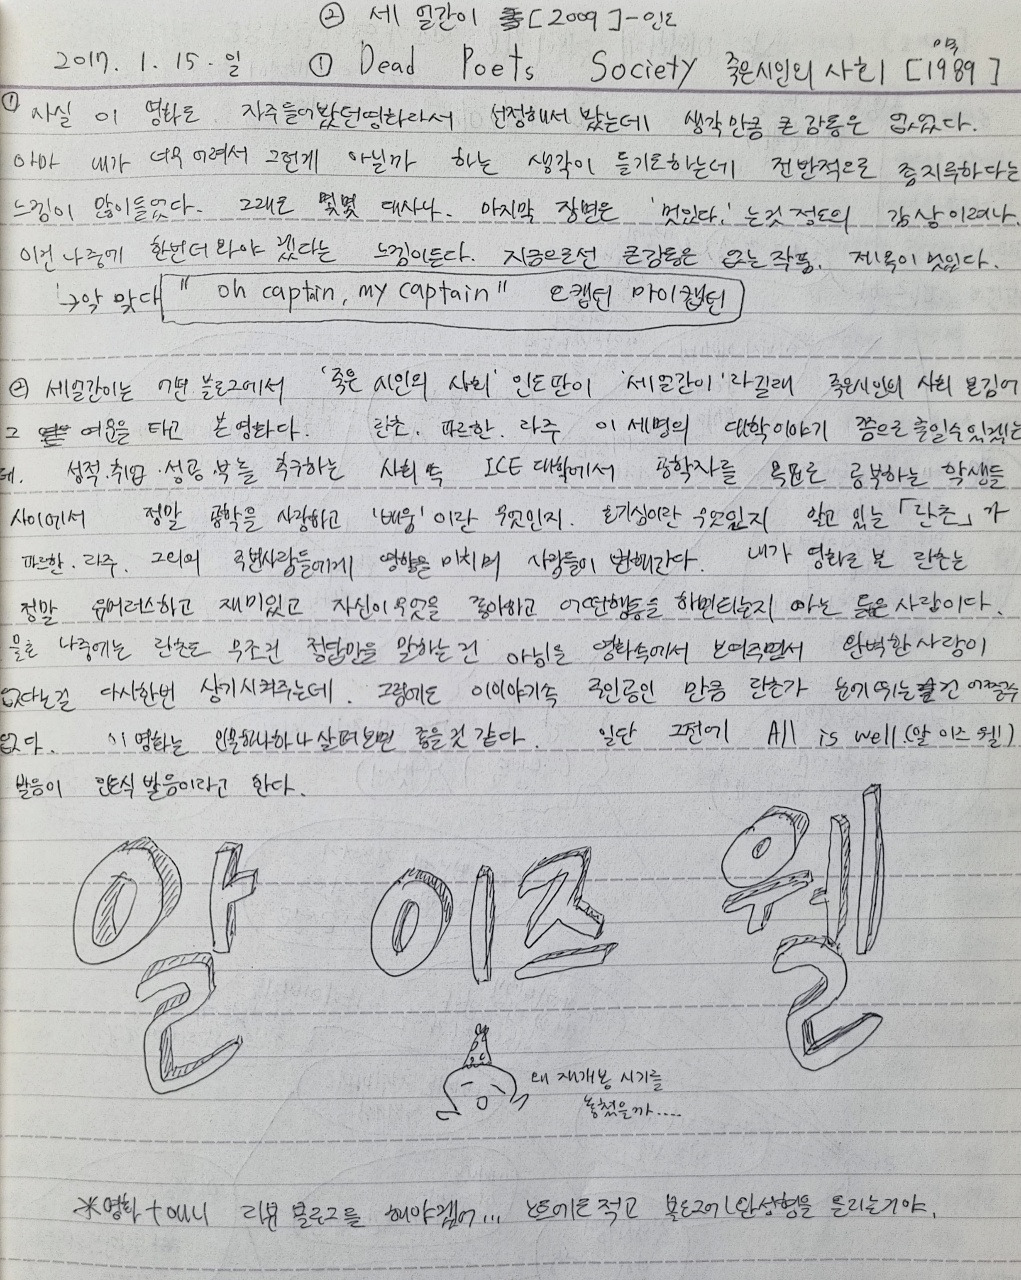 ② 세 얼간이 [2009]-인도
2017. 1. 15. 일 ① Dead Poets Society 죽은시인의 사회 [1989]
① 사실 이 영화도 자주들어봤던영화라서 선정해서 봤는데 생각만큼 큰 감동은 없었다.
아마 내가 너무 어려서 그런게 아닐까 하는 생각이 들기도하는데 전반적으로 좀지루하다는
느낌이 많이들었다. 그래도 몇몇 대사나. 마지막 장면은 '멋있다.'는것 정도의 감상이려나.
이건 나중에 한번더 봐야 겠다는 느낌이든다. 지금으로선 큰감동은 없는 작품. 제목이 멋있다.
↳아 맞다 " oh captain, my captain " 오캡틴 마이캡틴
② 세얼간이는 어떤 블로그에서 '죽은 시인의 사회' 인도판이 '세얼간이'라길래 죽은시인의 사회 본김에
그 여운을 타고 본영화다. 란초. 파르한. 라주 이 세명의 대학이야기 쯤으로 줄일수있겠는
데. 성적.취업.성공.부를 추구하는 사회 속 ICE 대학에서 공학자를 목표로 공부하는 학생들
사이에서 정말 공학을 사랑하고 '배움'이란 무엇인지. 호기심이란 무엇인지 알고 있는 「란초」가
파르한. 라주. 그외의 주변사람들에게 영향을 미치며 사람들이 변해간다. 내가 영화로 본 란초는
정말 유머러스하고 재미있고 자신이 무엇을 좋아하고 어떤행동을 하면되는지 아는 사람이다.
물론 나중에는 란초도 무조건 정답만을 말하는건 아님을 영화속에서 보여주면서 완벽한사람이
없다는걸 다시한번 상기시켜주는데. 그럼에도 이이야기속 주인공인 만큼 란초가 눈에띄는건 어쩔수
없다. 이영화는 인물하나하나 살펴보면 좋을것 같다. 일단 그전에 All is well.(알 이즈 웰)
발음이 인도식 발음이라고 한다.
알 이즈 웰
왜 재개봉 시기를
놓쳤을까....
*영화 리뷰 블로그를 해야겠어... 노트에도 적고 블로그에 완성형을 올리는거야.